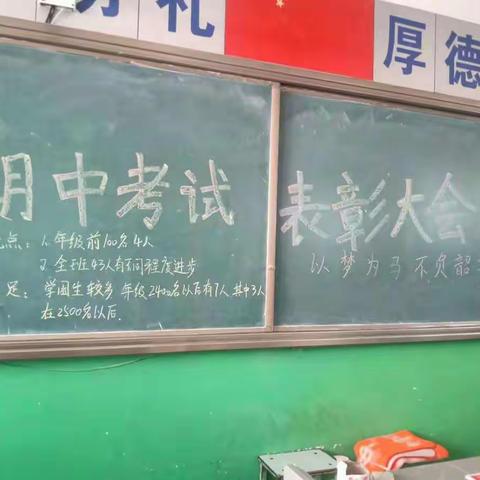 礼
厚
德
期中考试
表彰大会
点：1.年级前100名4人
2.全班43人有不同程度进步
足：学困生较多 年级2400名以后有7人 其中3人
在2500名以后.
以梦为马 不负韶